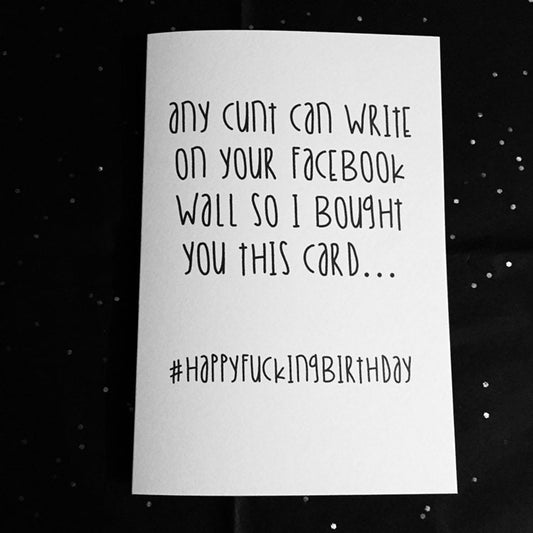 any cunt can write
on your facebook
wall so I bought
you this card...
#happyfuckingbirthday